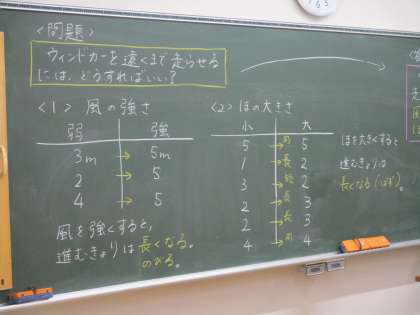 <問題>
ウィンドカーを遠くまで走らせる
には、どうすればいい?
<1> 風の強さ
弱 強
3m → 5m
2 → 5
4 → 5
風を強くすると、
進むきょりは長くなる。
のびる。
<2> ほの大きさ
小 大
5 → 同 5
1 → 長 2
3 → 短 2
2 → 長 3
2 → 長 3
4 → 同 4
ほを大きくすると
進むきょりは
長くなる(はず)。
走
風